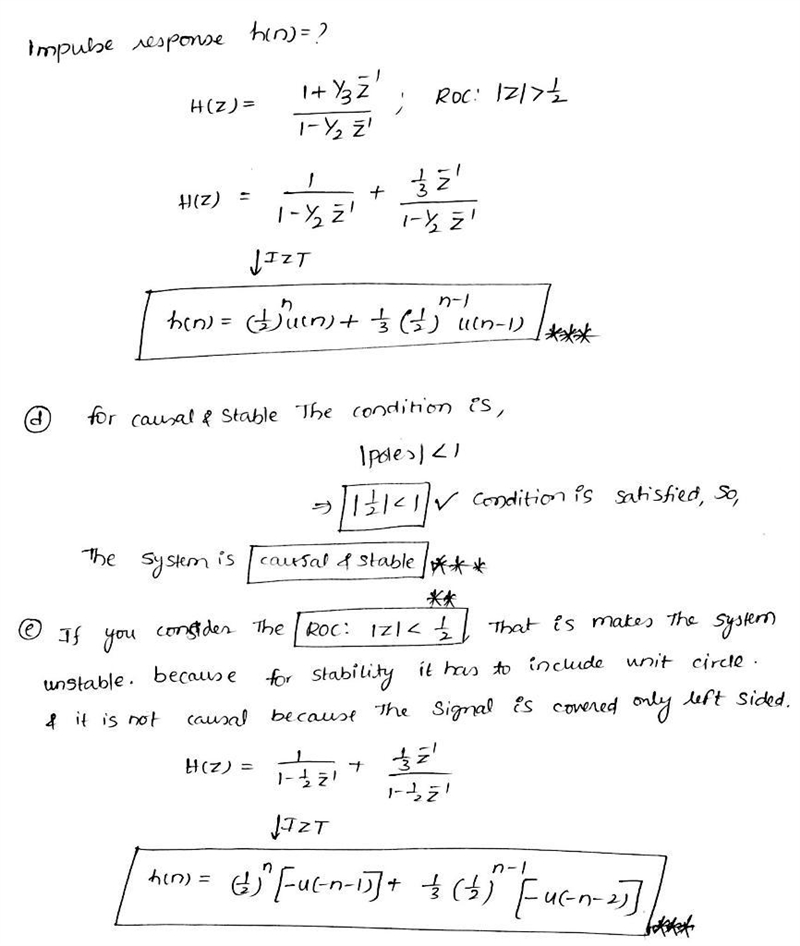 Impulse response h(n)=?
H(z) = (1+1/3 z^-1)/(1-1/2 z^-1) ; ROC: |z|>1/2
H(z) = 1/(1-1/2 z^-1) + (1/3 z^-1)/(1-1/2 z^-1)
↓IZT
h(n) = (1/2)^n u(n) + 1/3 (1/2)^(n-1) u(n-1) ***
(d) for causal & stable The condition is,
|poles| < 1
⇒ |1/2| < 1 ✓ condition is satisfied, so,
The system is causal & stable ***
**
(e) If you consider The ROC: |z| < 1/2, That is makes The system
unstable. because for stability it has to include unit circle.
& it is not causal because The signal is covered only left sided.
H(z) = 1/(1-1/2 z^-1) + (1/3 z^-1)/(1-1/2 z^-1)
↓IZT
h(n) = (1/2)^n [-u(-n-1)] + 1/3 (1/2)^(n-1) [-u(-n-2)] ***